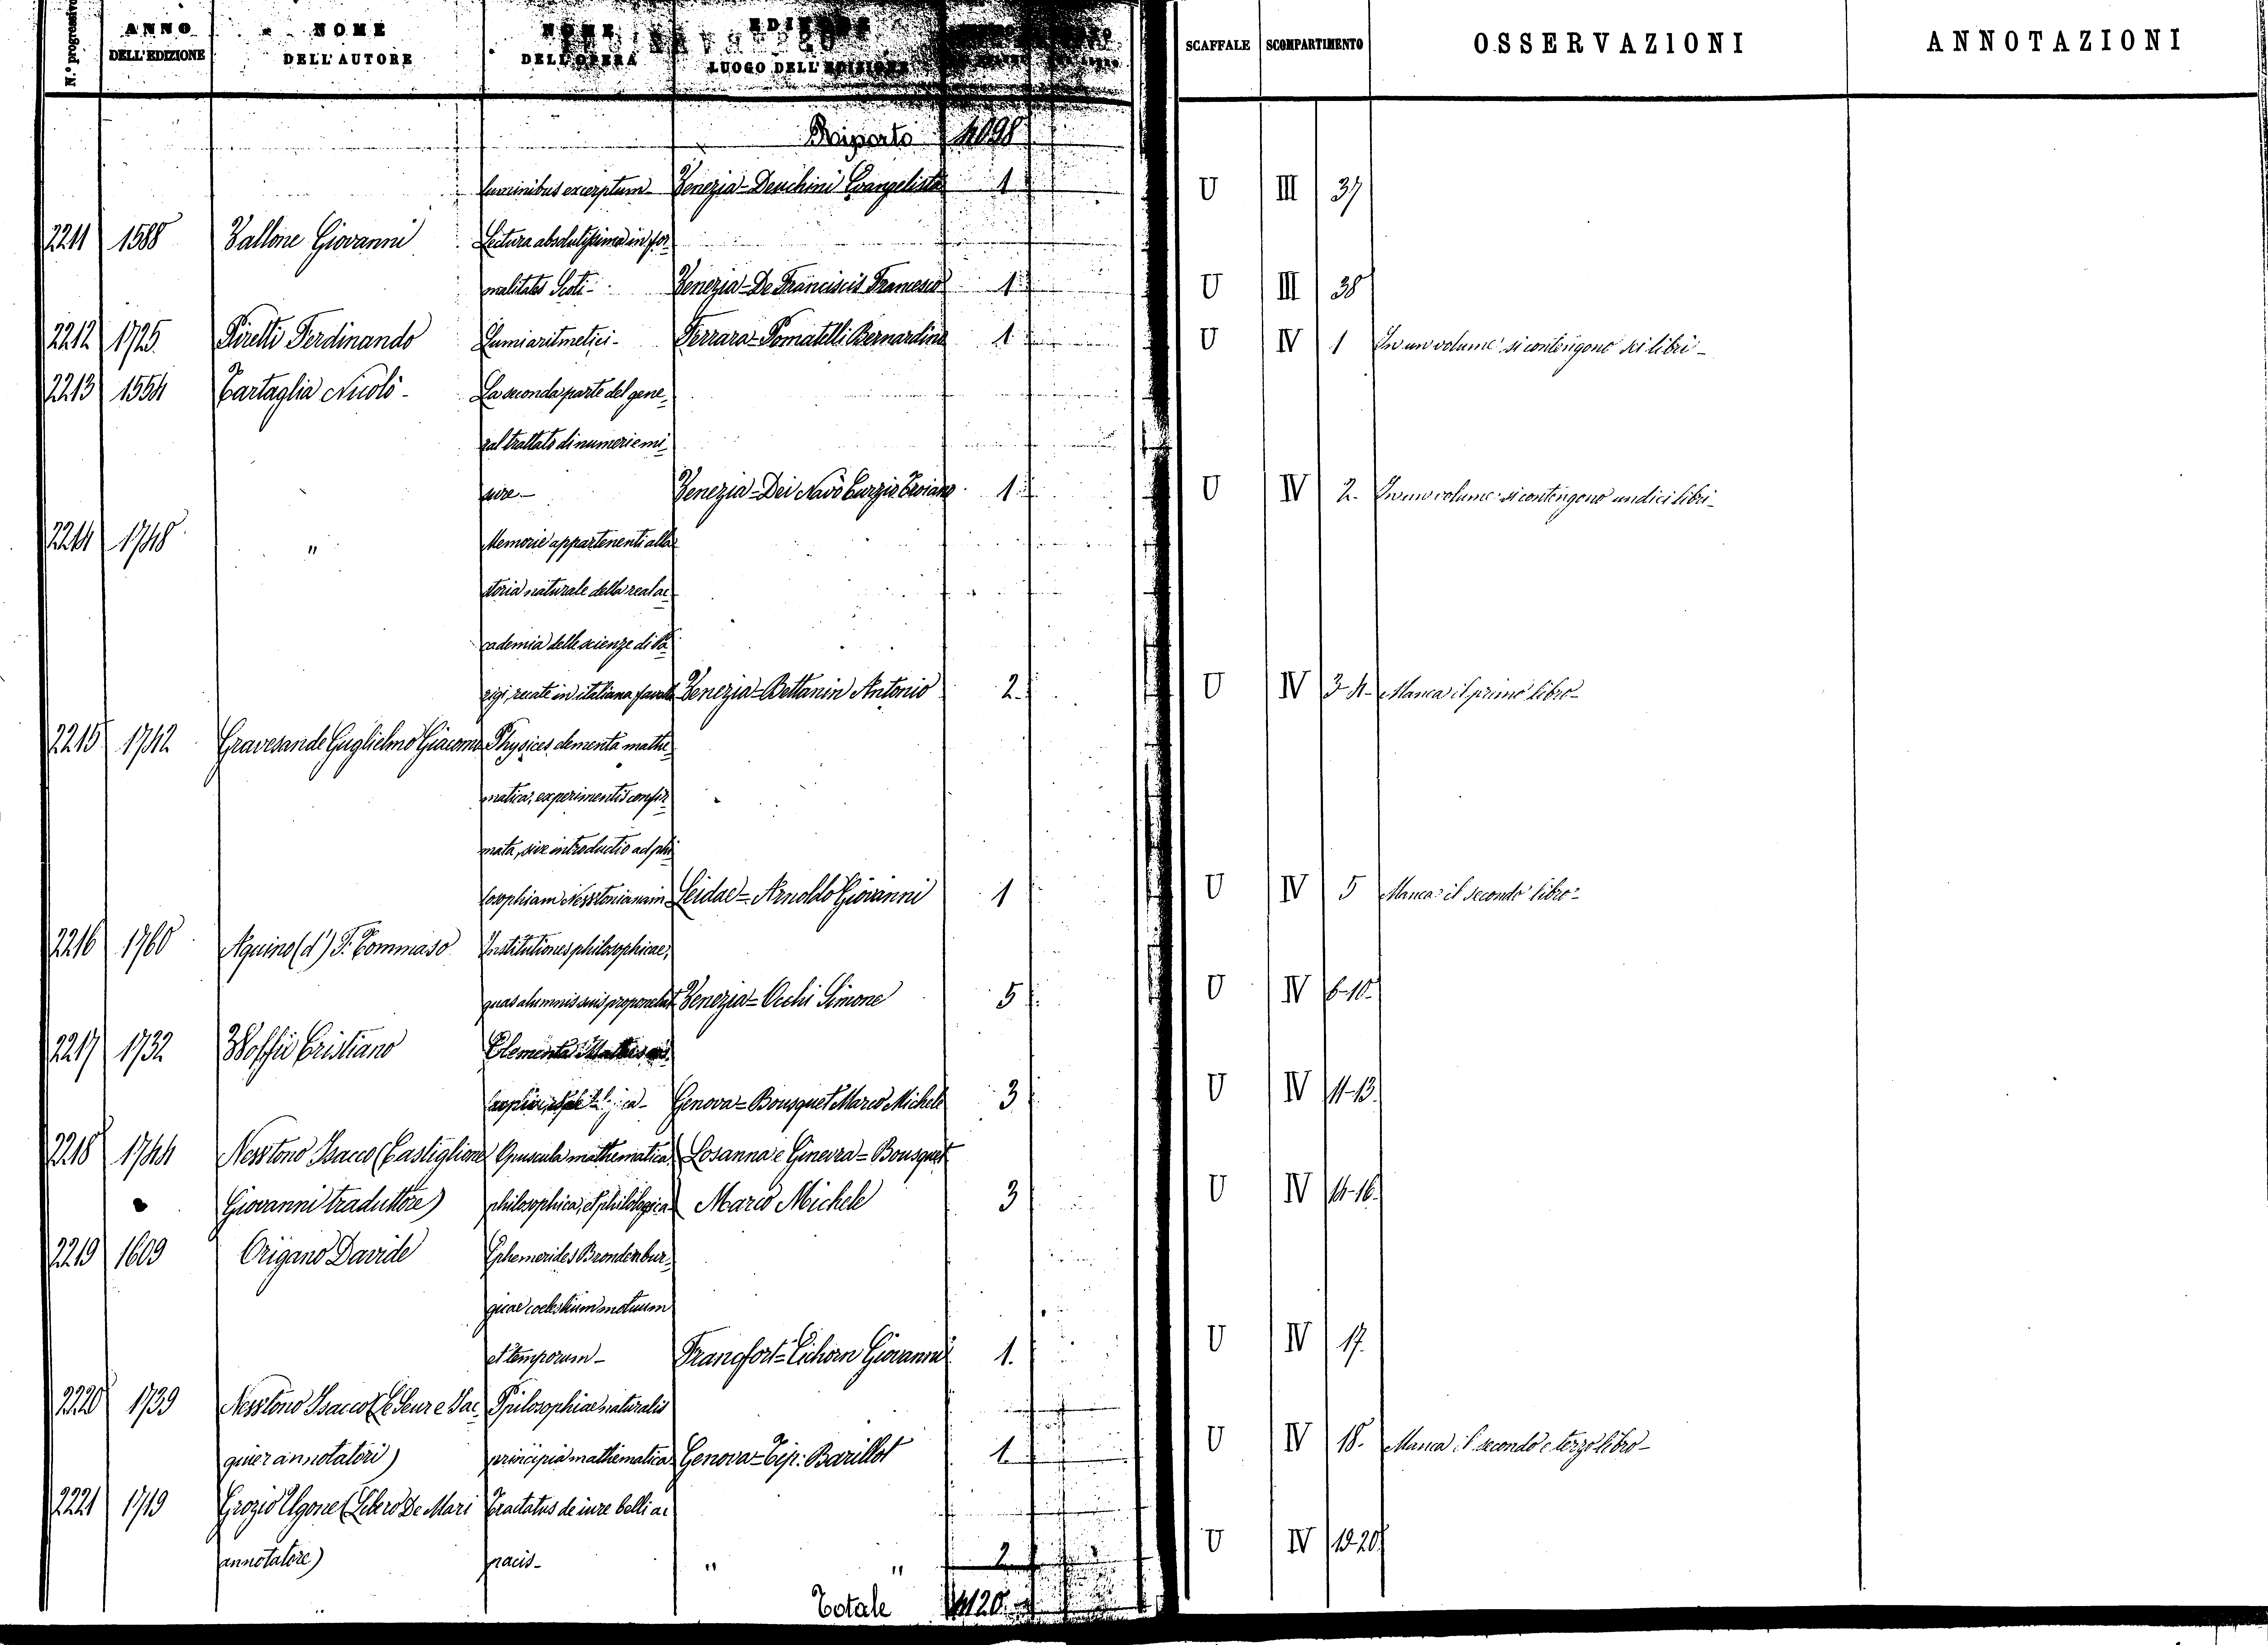 N.° progressivo ANNO DELL'EDIZIONE NOME DELL'AUTORE NOME DELL'OPERA EDIZIONE LUOGO DELL'EDIZIONE SCAFFALE SCOMPARTIMENTO OSSERVAZIONI ANNOTAZIONI
Riporto 4098
luminibus excerptum- Venezia-Deuchini Evangelista 1 U III 37
2211 1588 Vallone Giovanni Lectura absolutissima in for=
malitates Scoti- Venezia-De Franciscis Francesco 1 U III 38
2212 1725 Pirelli Ferdinando Lumi aritmetici- Ferrara-Pomatelli Bernardino 1 U IV 1 In un volume si contengono sei libri-
2213 1554 Tartaglia Nicolò- La seconda parte del gene=
ral trattato di numeri e mi=
sure- Venezia-Dei Navò Curzio Troiano 1 U IV 2. In un volume si contengono undici libri-
2214 1748 " Memorie appartenenti alla
storia naturale della real ac=
cademia delle scienze di Pa=
rigi, recate in italiana favella Venezia-Bettanin Antonio 2 U IV 3-4- Manca il primo libro-
2215 1742 Gravesande Guglielmo Giacomo Physices elementa mathe=
matica, experimentis confir=
mata, sive introductio ad phi=
losophiam Nesstonianam Leidae=Arnoldo Giovanni 1 U IV 5 Manca il secondo libro-
2216 1760 Aquino (d') S. Tommaso Institutiones philosophicae,
quas alumnis suis proponebat Venezia=Occhi Simone 5 U IV 6-10.
2217 1732 Wolfio Cristiano Elementa
Genova=Bousquet Marco Michele 3 U IV 11-13.
2218 1744 Nesstono Isacco (Castiglione Opuscula mathematica, Losanna e Ginevra=Bousquet
Giovanni traduttore) philosophica, et philologica Marco Michele 3 U IV 14-16.
2219 1609 Origano Davide Ephemerides Brondenbur=
gicae coelestium motuum
et temporum- Francfort=Eichorn Giovanni 1. U IV 17.
2220 1739 Nesstono Isacco (Le Seur e Jac= Philosophiae naturalis
quier annotatori) principia mathematica Genova=Tip: Barillot 1. U IV 18. Manca il secondo e terzo libro-
2221 1719 Grozio Ugone (Libero De Mari Tractatus de iure belli ac
annotatore) pacis- " " 2 U IV 19-20
Totale 4120